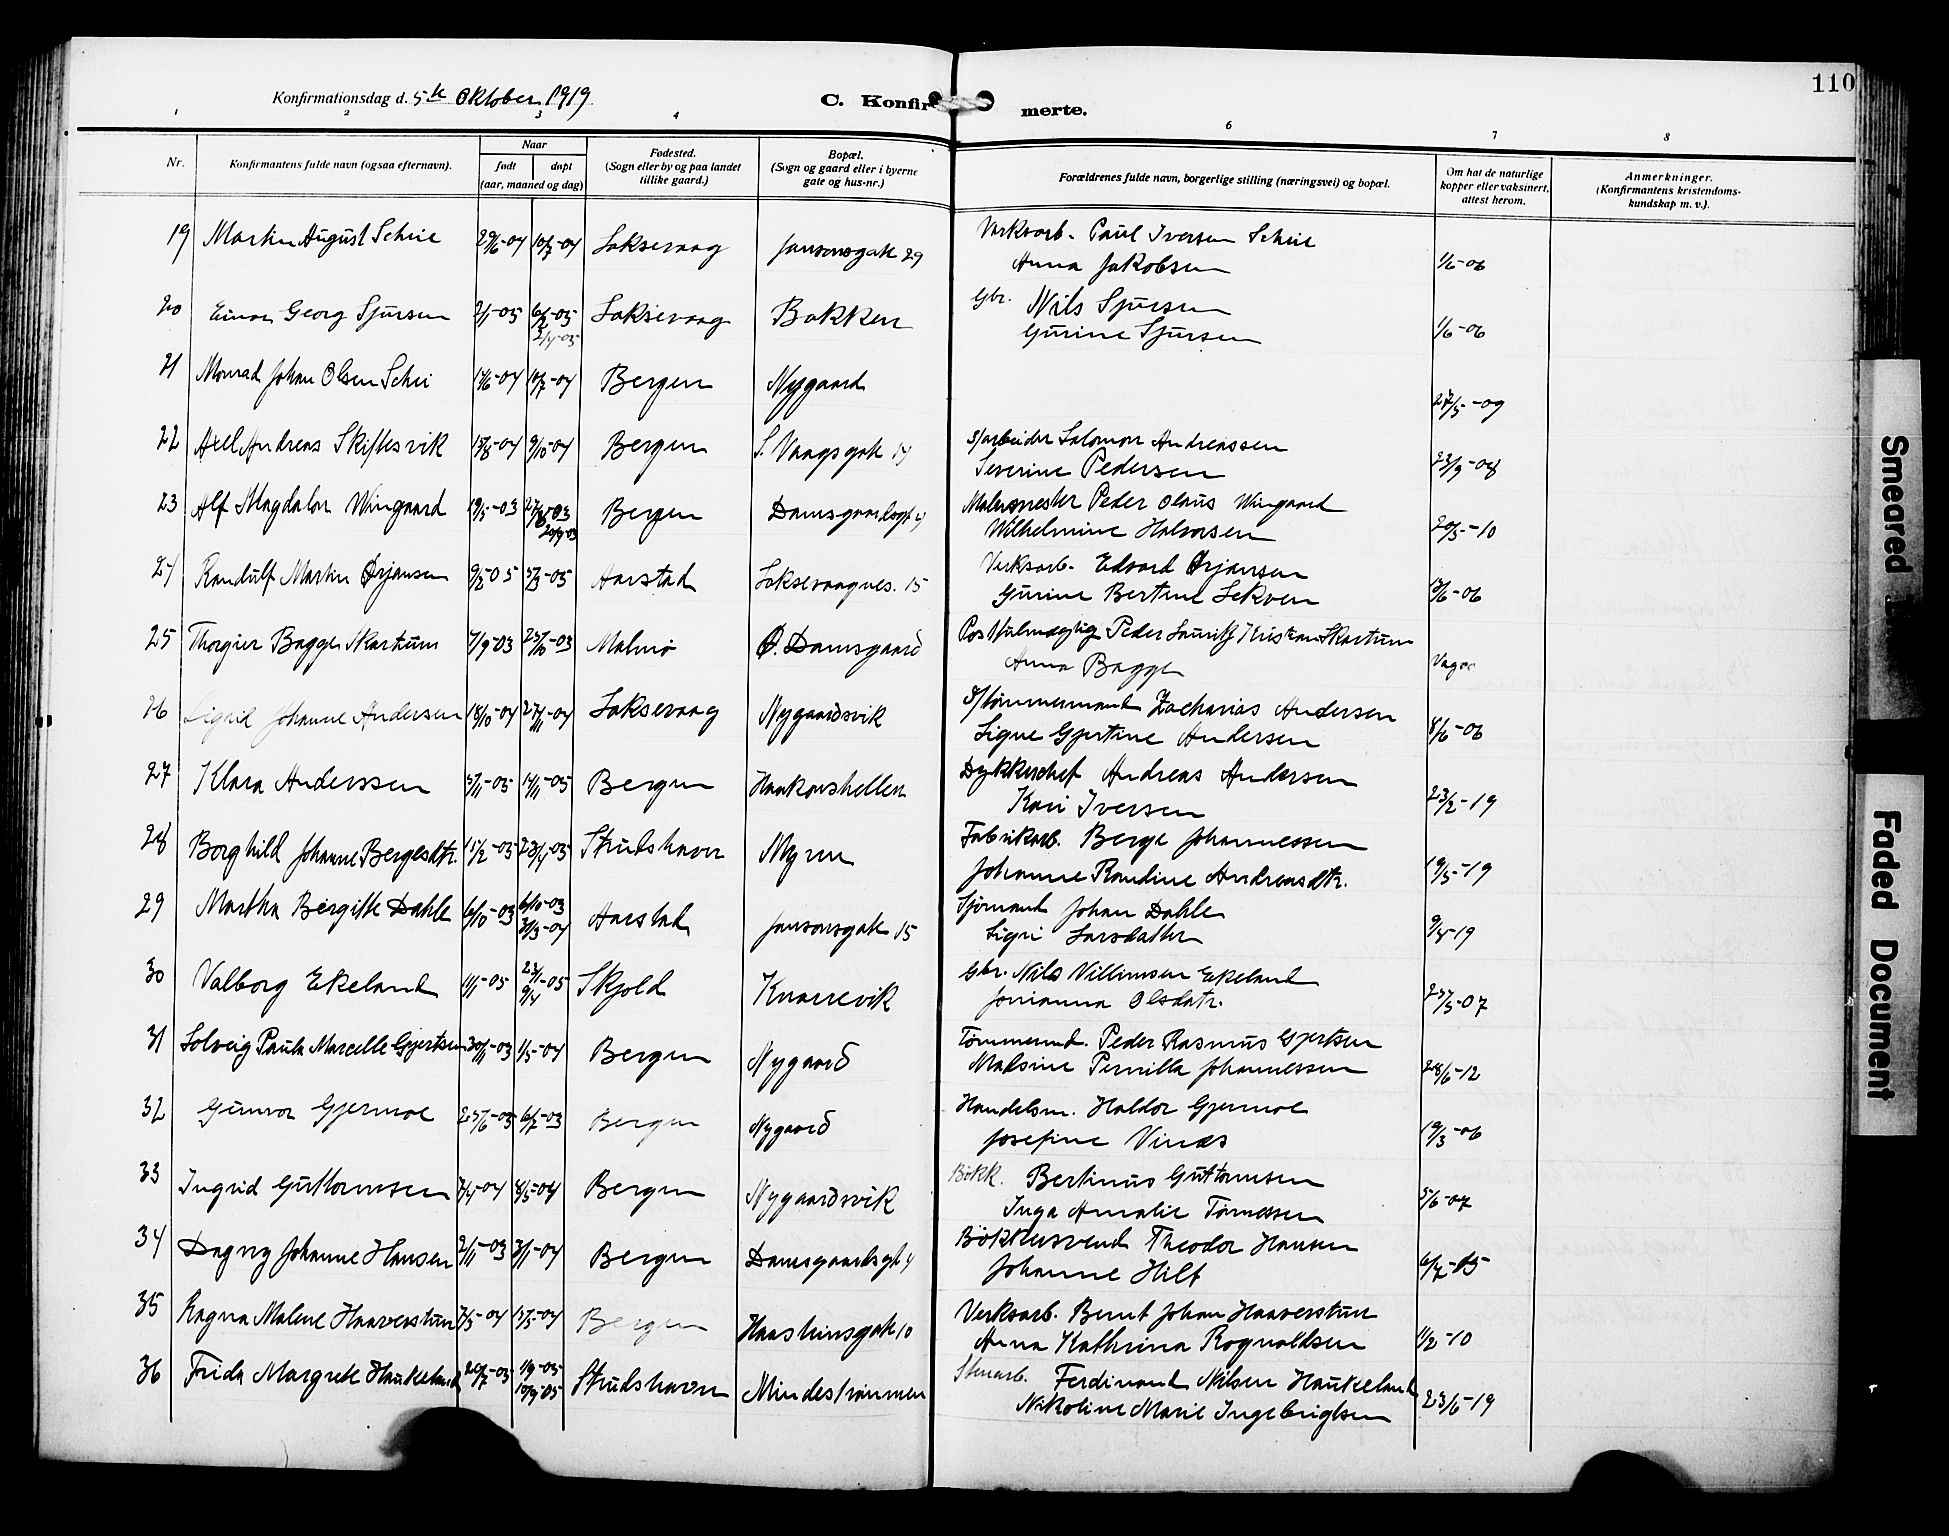 110
Konfirmationsdag d. 5te Oktober 1919.
C. Konfirmerte.
1 2 3 4 6 7 8
Nr.
Konfirmantens fulde navn (ogsaa efternavn).
Naar
født døpt
(aar, maaned og dag)
Fødested.
(Sogn eller by og paa landet
tillike gaard.)
Bopæl.
(Sogn og gaard eller i byerne
gate og hus-nr.)
Forældrenes fulde navn, borgerlige stilling (næringsvei) og bopæl.
Om hat de naturlige
kopper eller vaksinert,
attest herom.
Anmerkninger.
(Konfirmantens kristendoms-
kundskap m. v.).
19 Martin August Scheie 29/6-04 10/7-04 Laksevaag Jansonsgate 29 Verksarb. Paul Iversen Scheie
Anna Jakobsen 1/6-06
20 Einar Georg Sjursen 2/1-05 6/2-05 Laksevaag Bakken Gbr. Nils Sjursen
2/4-05 Gurine Sjursen 1/6-06
21 Monrad Johan Olsen Schei 10/7-04 Bergen Nygaard
27/5-09
22 Axel Andreas Skiftesvik 15/8-04 9/10-04 Bergen S. Vaagsgate 14 S/arbeider Salomon Andreassen
Severine Pedersen 23/9-08
23 Alf Magdalon Wingaard 19/5-03 Bergen Damsgaardsgt 4 Malermester Peder Olaus Wingaard
20/9-03 Wilhelmine Halvorsen 20/5-10
24 Randulf Martin Ørjansen 9/2-05 5/3-05 Aarstad Laksevaagnes. 15 Verksarb. Edvard Ørjansen
Gurine Bertine Lekven 13/6-06
25 Thorgier Bagge Skartum 7/9-03 25/10-03 Malmø Ø. Damsgaard Postfulmægtig Peder Lauritz Kristian Skartum
Anna Bagge
26 Sigrid Johanne Andersen 18/10-04 27/11-04 Laksevaag Nygaardsvik S/tømmermand Zacharias Andersen
Signe Gjertine Andersen 8/6-06
27 Klara Anderssen 5/11-05 Bergen Haakonshellen Dykkerchef Andreas Andersen
Kari Iversen 23/2-19
28 Borghild Johanne Bergesdtr. 15/2-05 23/4-05 Strudshavn Myren Fabrikarb. Berge Johannessen
Johanne Randine Andreasdtr. 19/5-19
29 Martha Bergitte Dahle 6/10-03 6/10-03 Aarstad Jansonsgate 15 Sjømand Johan Dahle
30/3-04 Sigri Larsdatter 9/4-19
30 Valborg Ekeland 1/1-05 23/1-05 Skjold Knarrevik Gbr. Nils Villimsen Ekeland
9/4 Jorianna Olsdatr. 27/5-07
31 Solveig Paula Marcelle Gjertsen 30/11-03 1/5-04 Bergen Nygaard Tømmermd. Peder Rasmus Gjertsen
Maksine Pernilla Johannessen 28/6-12
32 Gunvor Gjermoe 25/6-03 6/7-03 Bergen Nygaard Handelsm. Haldor Gjermoe
Josefine Vinæs 19/3-06
33 Ingrid Guttormsen 7/4-04 8/5-04 Bergen Nygaardsvik Bøkk. Bertinus Guttormsen
Inga Amalie Tørnessen 5/6-07
34 Dagny Johanne Hansen 2/11-03 3/1-04 Bergen Damsgaardsgt 4 Bøkkersvend Theodor Hansen
Johanne Hilt 6/7-05
35 Ragna Malene Haaverstun 7/3-04 15/5-04 Bergen 10 Verksarb. Bernt Johan Haaverstun
Anna Kathrina Rognaldsen 11/2-10
36 Frida Margrete Haukeland 20/7-05 1/9-05 Strudshavn Mindestrømmen Stenarb. Ferdinand Nilsen Haukeland
10/9-05 Nikoline Marie Ingebrigtsen 23/6-19
Smeared
Faded Document